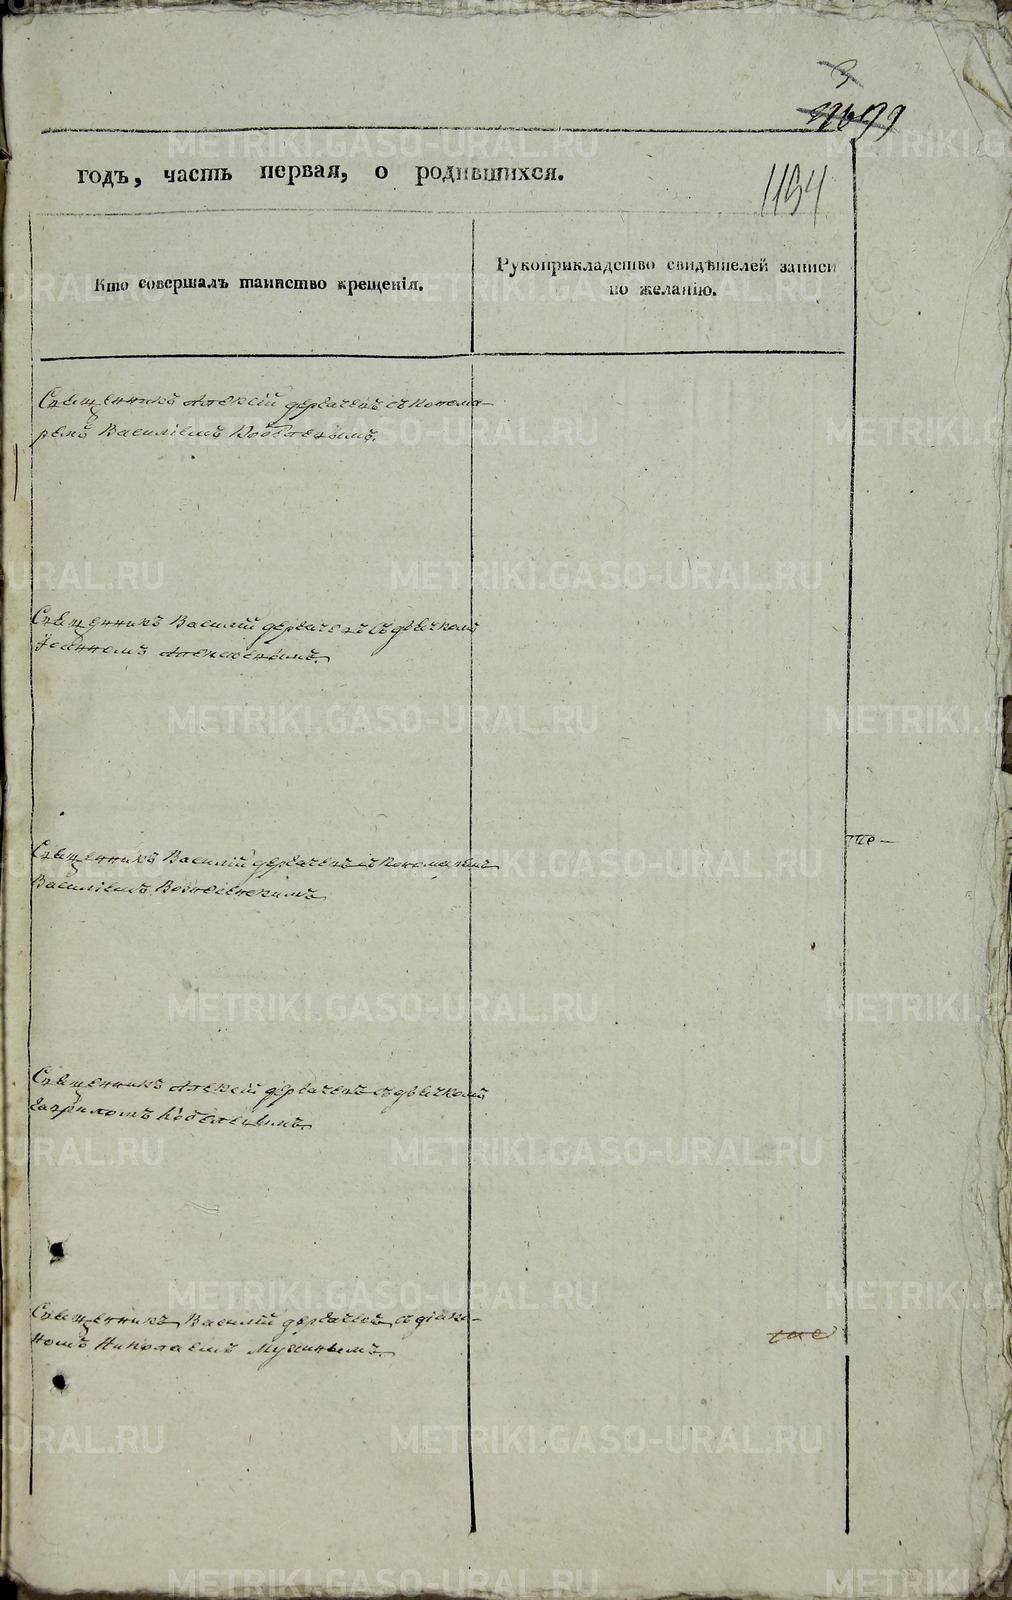 1194
годъ, часть первая, о родившихся.
Кто совершалъ таинство крещенія.
Рукоприкладство свидѣтелей записи
по желанію.
Священникъ Алексій Дерябинъ съ понома-
ремъ Василіемъ
Священникъ Василій Дерябинъ съ дьячкомъ
Іоанномъ Алексѣевымъ.
Священникъ Василій Дерябинъ съ пономаремъ
Василіемъ Вознесенскимъ
Священникъ Алексій Дерябинъ съ дьячкомъ
Гавриломъ
Священникъ Василій Дерябинъ съ діако-
номъ Николаемъ
METRIKI.GASO-URAL.RU